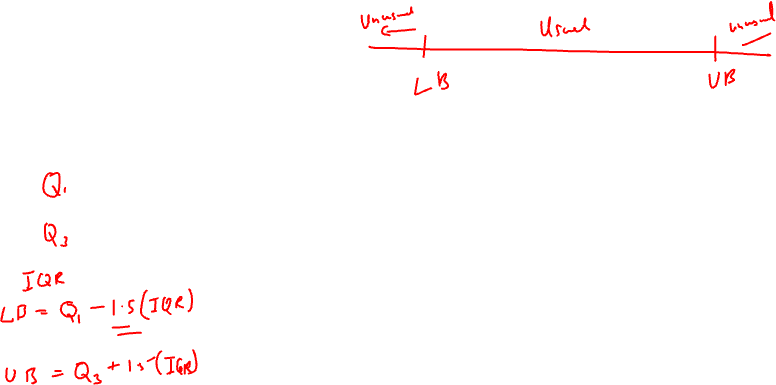 Unusual Usual unusual
LB UB
Q₁
Q₃
IQR
LB = Q₁ - 1.5(IQR)
UB = Q₃ + 1.5(IQR)